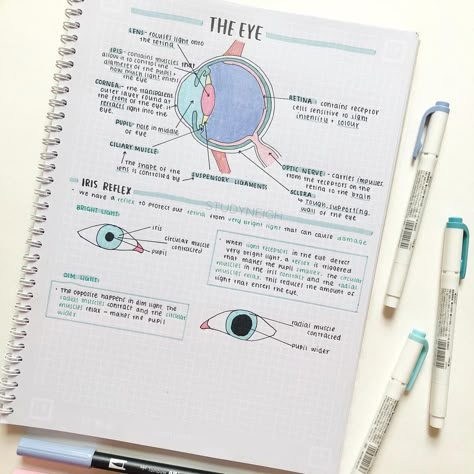 THE EYE
LENS - focuses light onto
the retina
IRIS - contains muscles that
allow it to control the
diameter of the pupil +
how much light enters
the eye
CORNEA - the transparent
outer layer found at
the front of the eye. it
refracts light into the
eye.
PUPIL - hole in middle
of eye
CILIARY MUSCLE
↳ the shape of the
lens is controlled by
SUSPENSORY LIGAMENTS
RETINA - contains receptor
cells sensitive to light
intensity + colour
OPTIC NERVE - carries impulses
from the receptors on
the retina to the brain
SCLERA
↳ tough, supporting
wall of the eye
STUDYNEIGH
- IRIS REFLEX
- we have a reflex to protect our retina from very bright light that can cause damage
BRIGHT LIGHT:
iris
circular muscle
contracted
pupil
• When light receptors in the eye detect
very bright light, a reflex is triggered
that makes the pupil smaller. The circular
muscles in the iris contract and the radial
muscles relax. this reduces the amount of
light that enters the eye.
DIM LIGHT:
• The opposite happens in dim light. the
radial muscles contract and the circular
muscles relax - makes the pupil
wider
radial muscle
contracted
pupil wider